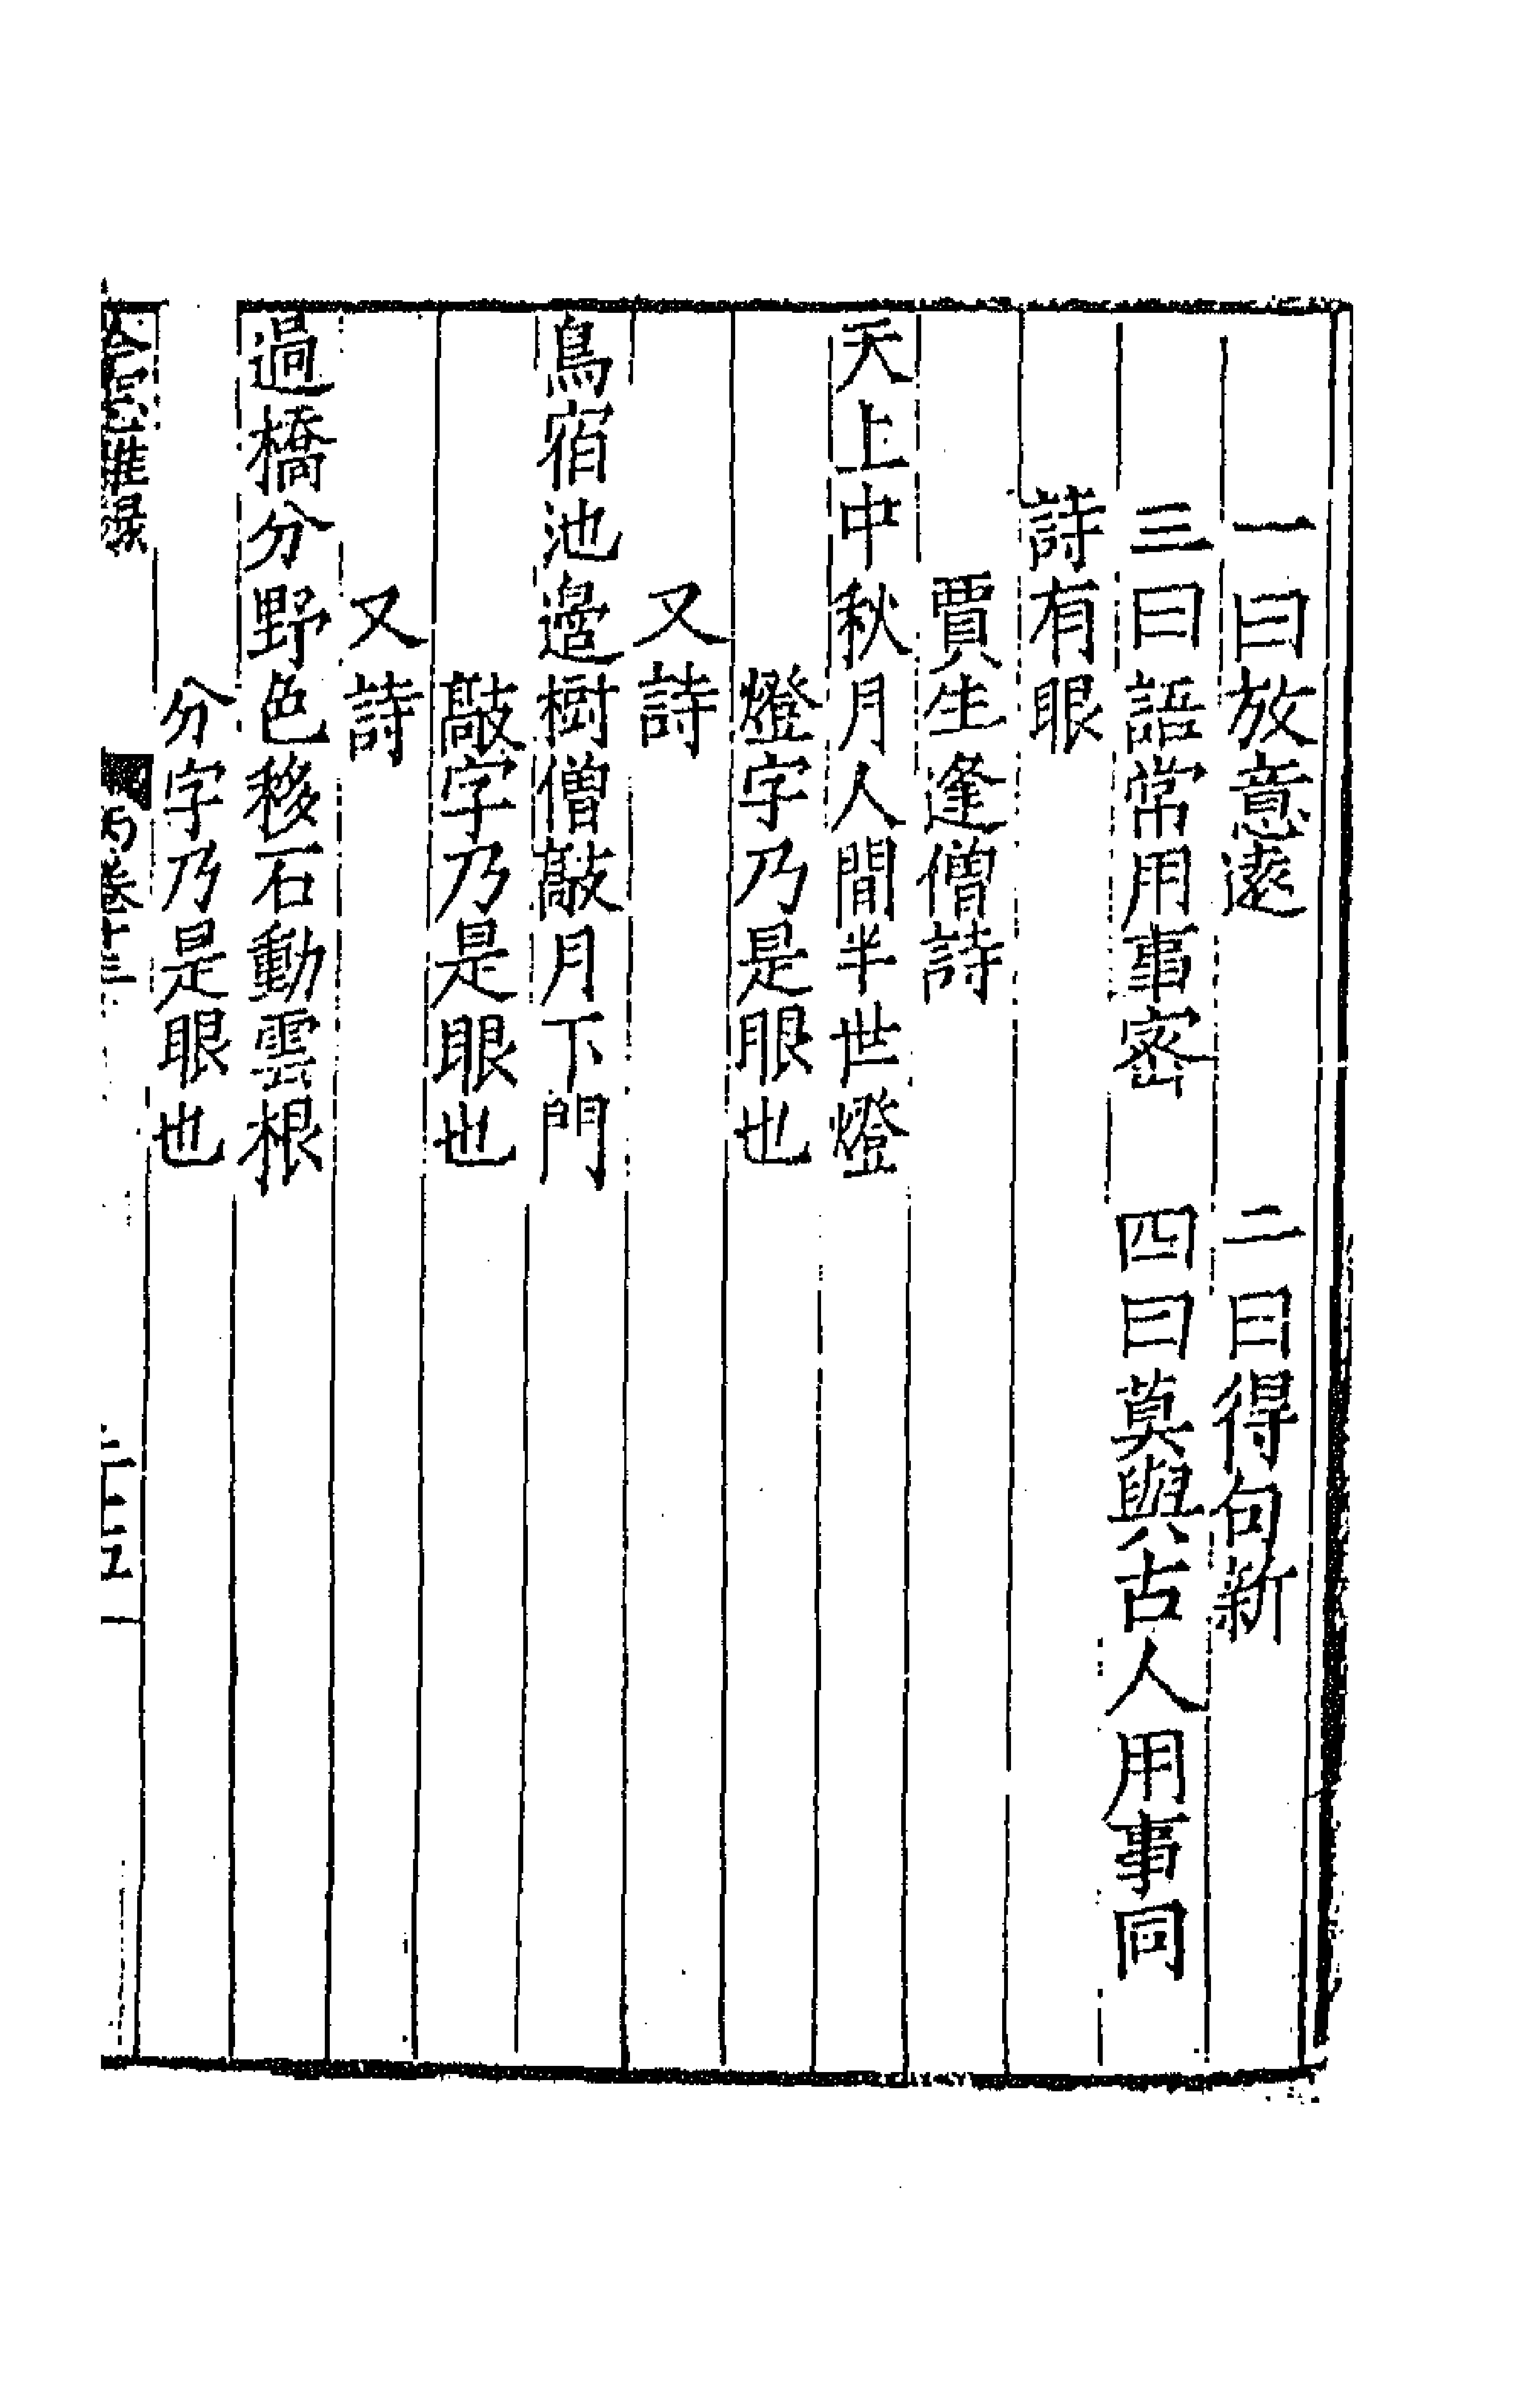 一曰放意遠　二曰得句新
三曰語常用事密　四曰莫與古人用事同
詩有眼
賈生逢僧詩
天上中秋月人間半世燈
燈字乃是眼也
又詩
鳥宿池邉樹僧敲月下門
敲字乃是眼也
又詩
過橋分野色移石動雲根
分字乃是眼也
卷十三